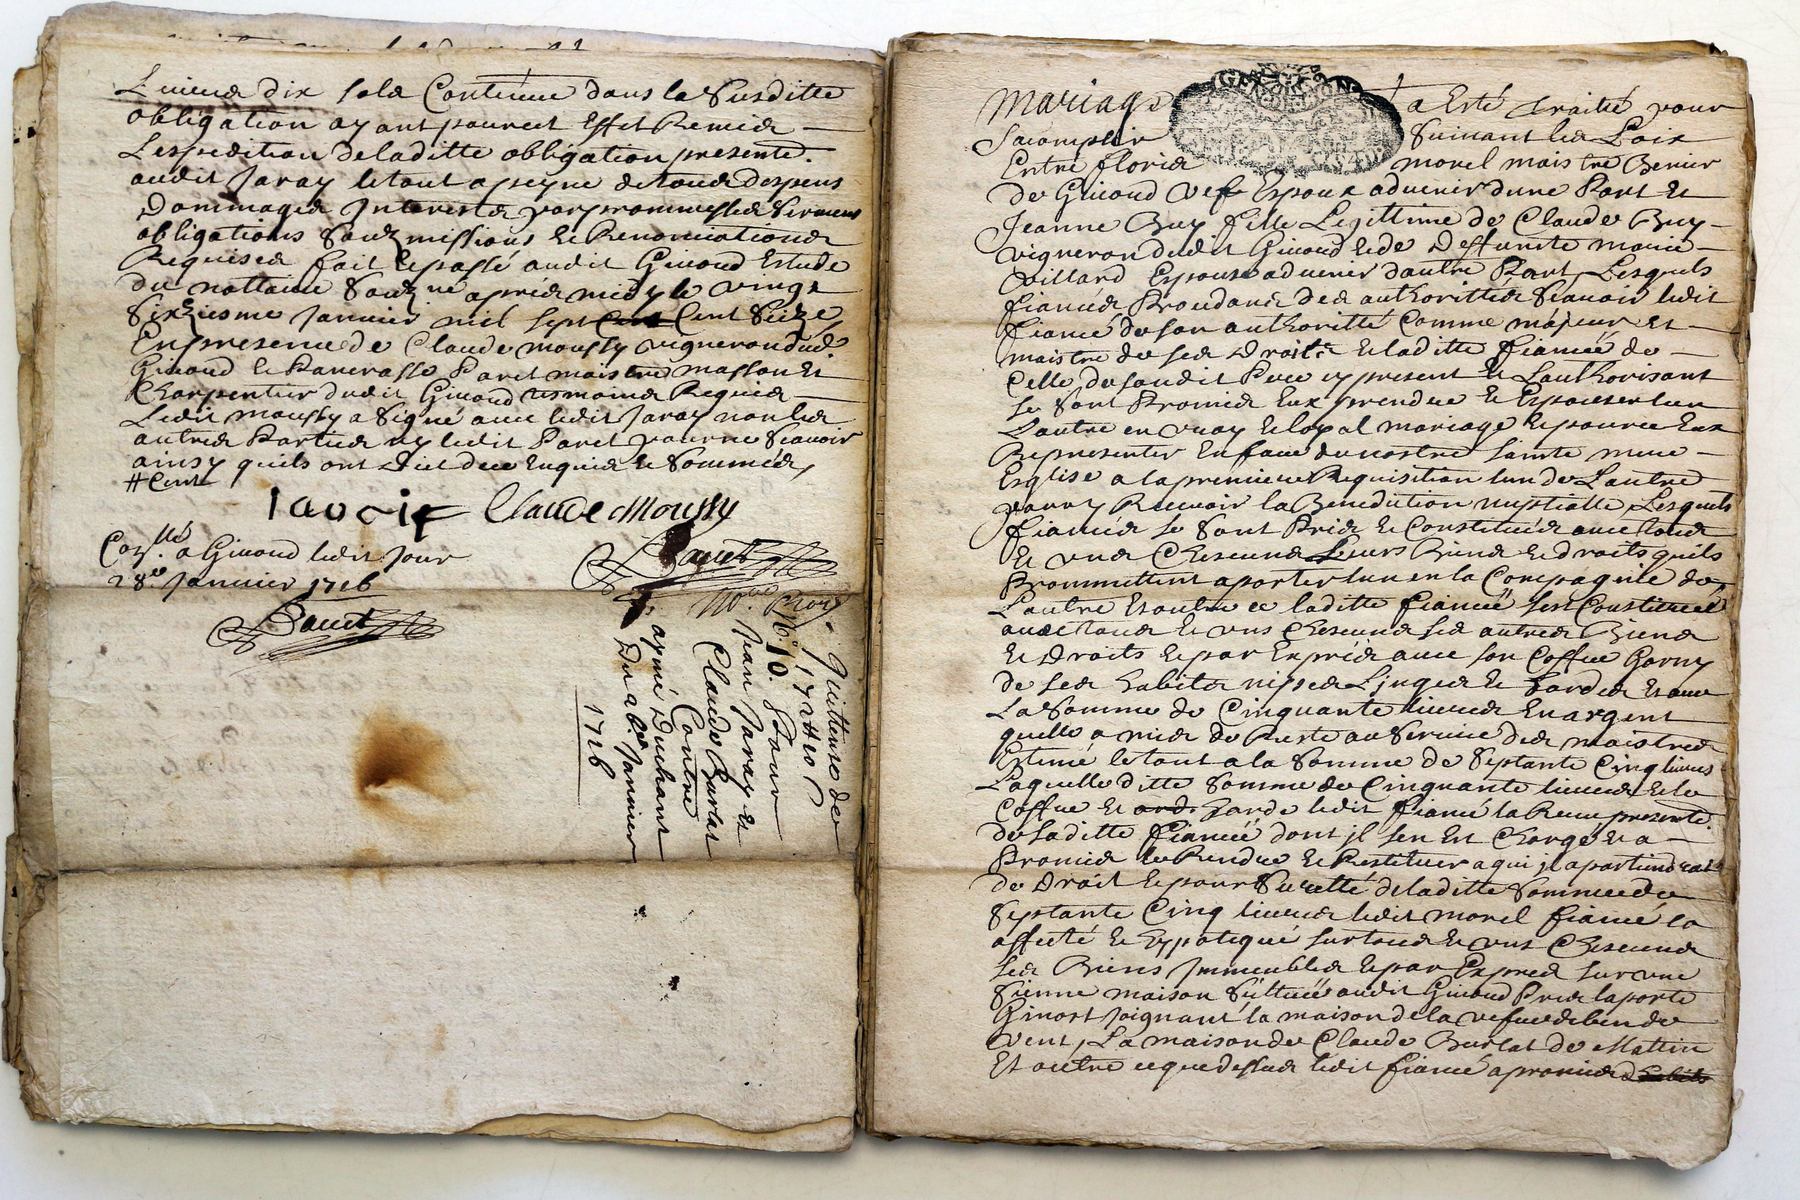 Livres dix sols Contenue dans la Susditte
obligation ayant pour cet Effet Remis
L'expedition de laditte obligation presente.
audit Jaray le tout a peyne de tous despens
Dommages Interests par promesses Sermens
obligations Soubzmissions et Renonciations
Requises fait et passé audit Givord Estude
du nottaire Soubz né apres midy le vingt
Sixziesme Janvier mil sept Cent Seize
En presence de Claude moussy vigneron dud.
Givord et Pancrasse Paret maistre masson et
Charpentier dudit Givord tesmoins Requis
Ledit moussy a Signé avec ledit Jaray non les
autres Parties ny ledit Paret pour ne Scavoir
ainsy quils ont Dict de ce Enquis et Sommés,
# Cent
Claude Moussy
Con.llé a Givord ledit Jour
28e Janvier 1716
No.re Roy.
Quittance de
172 # 10 s
N.o 10. Pour
Jean Jaray et
Claude Burlat
Contre
aymé Duchant
Du 26e. Janvier
1716
mariage a Esté traitté pour
Sacomplir Suivant les Loix
Entre floris morel maistre
de Givord vef Espoux advenir dune Part et
Jeanne Buy fille Legittime de Claude Buy
vigneron dudit Givord et de Deffunte marie
Villard Espouse advenir dautre Part, Lesquels
fiancés Proudans des authorittés Scavoir ledit
fiancé de son authoritté Comme majeur et
maistre de ses Droits et laditte fiancée de
Celle de sondit Pere cy present et Lauthorisant
se sont Promis Eux prendre et Espouser lun
Lautre en vray et loyal mariage et pour ce Eux
Representer En face de nostre Sainte mere
Esglise a la premiere Requisition lun de Lautre
pour y Recevoir la Benediction nuptialle Lesquels
fiancés se sont Pris et Constitués avec tous
et uns Chescuns Leurs Biens et droits quils
Prommettent aporter lun en la Compagnie de
Lautre Et outre ce laditte fiancée sest Constituée
avec tous et uns Chescuns ses autres Biens
et Droits et par Exprés avec son Coffre Garny
de ses habits nippes Linges et hardes et avec
La Somme de Cinquante livres En argent
quelle a mis de Reste au Service des maistres
Estimé le tout a la Somme de Septante Cinq livres
Laquelle ditte Somme de Cinquante livres et le
Coffre et hardes ledit fiancé la Receu presente.
de laditte fiancée dont jl sen Est Chargé et a
Promis le Rendre et Restituer a qui jl apartiendrat
de Droit et pour Suretté de laditte Somme de
Septante Cinq livres ledit morel fiancé la
affecté et Hypotequé sur tous et uns Chescuns
ses Biens Immeubles et par Exprés sur une
Sienne maison Sittuée audit Givord Pres la porte
Ginost joignant la maison de la vefve de
vent, La maison de Claude Burlat de Mattin
Et outre ce que dessus ledit fiancé a promis